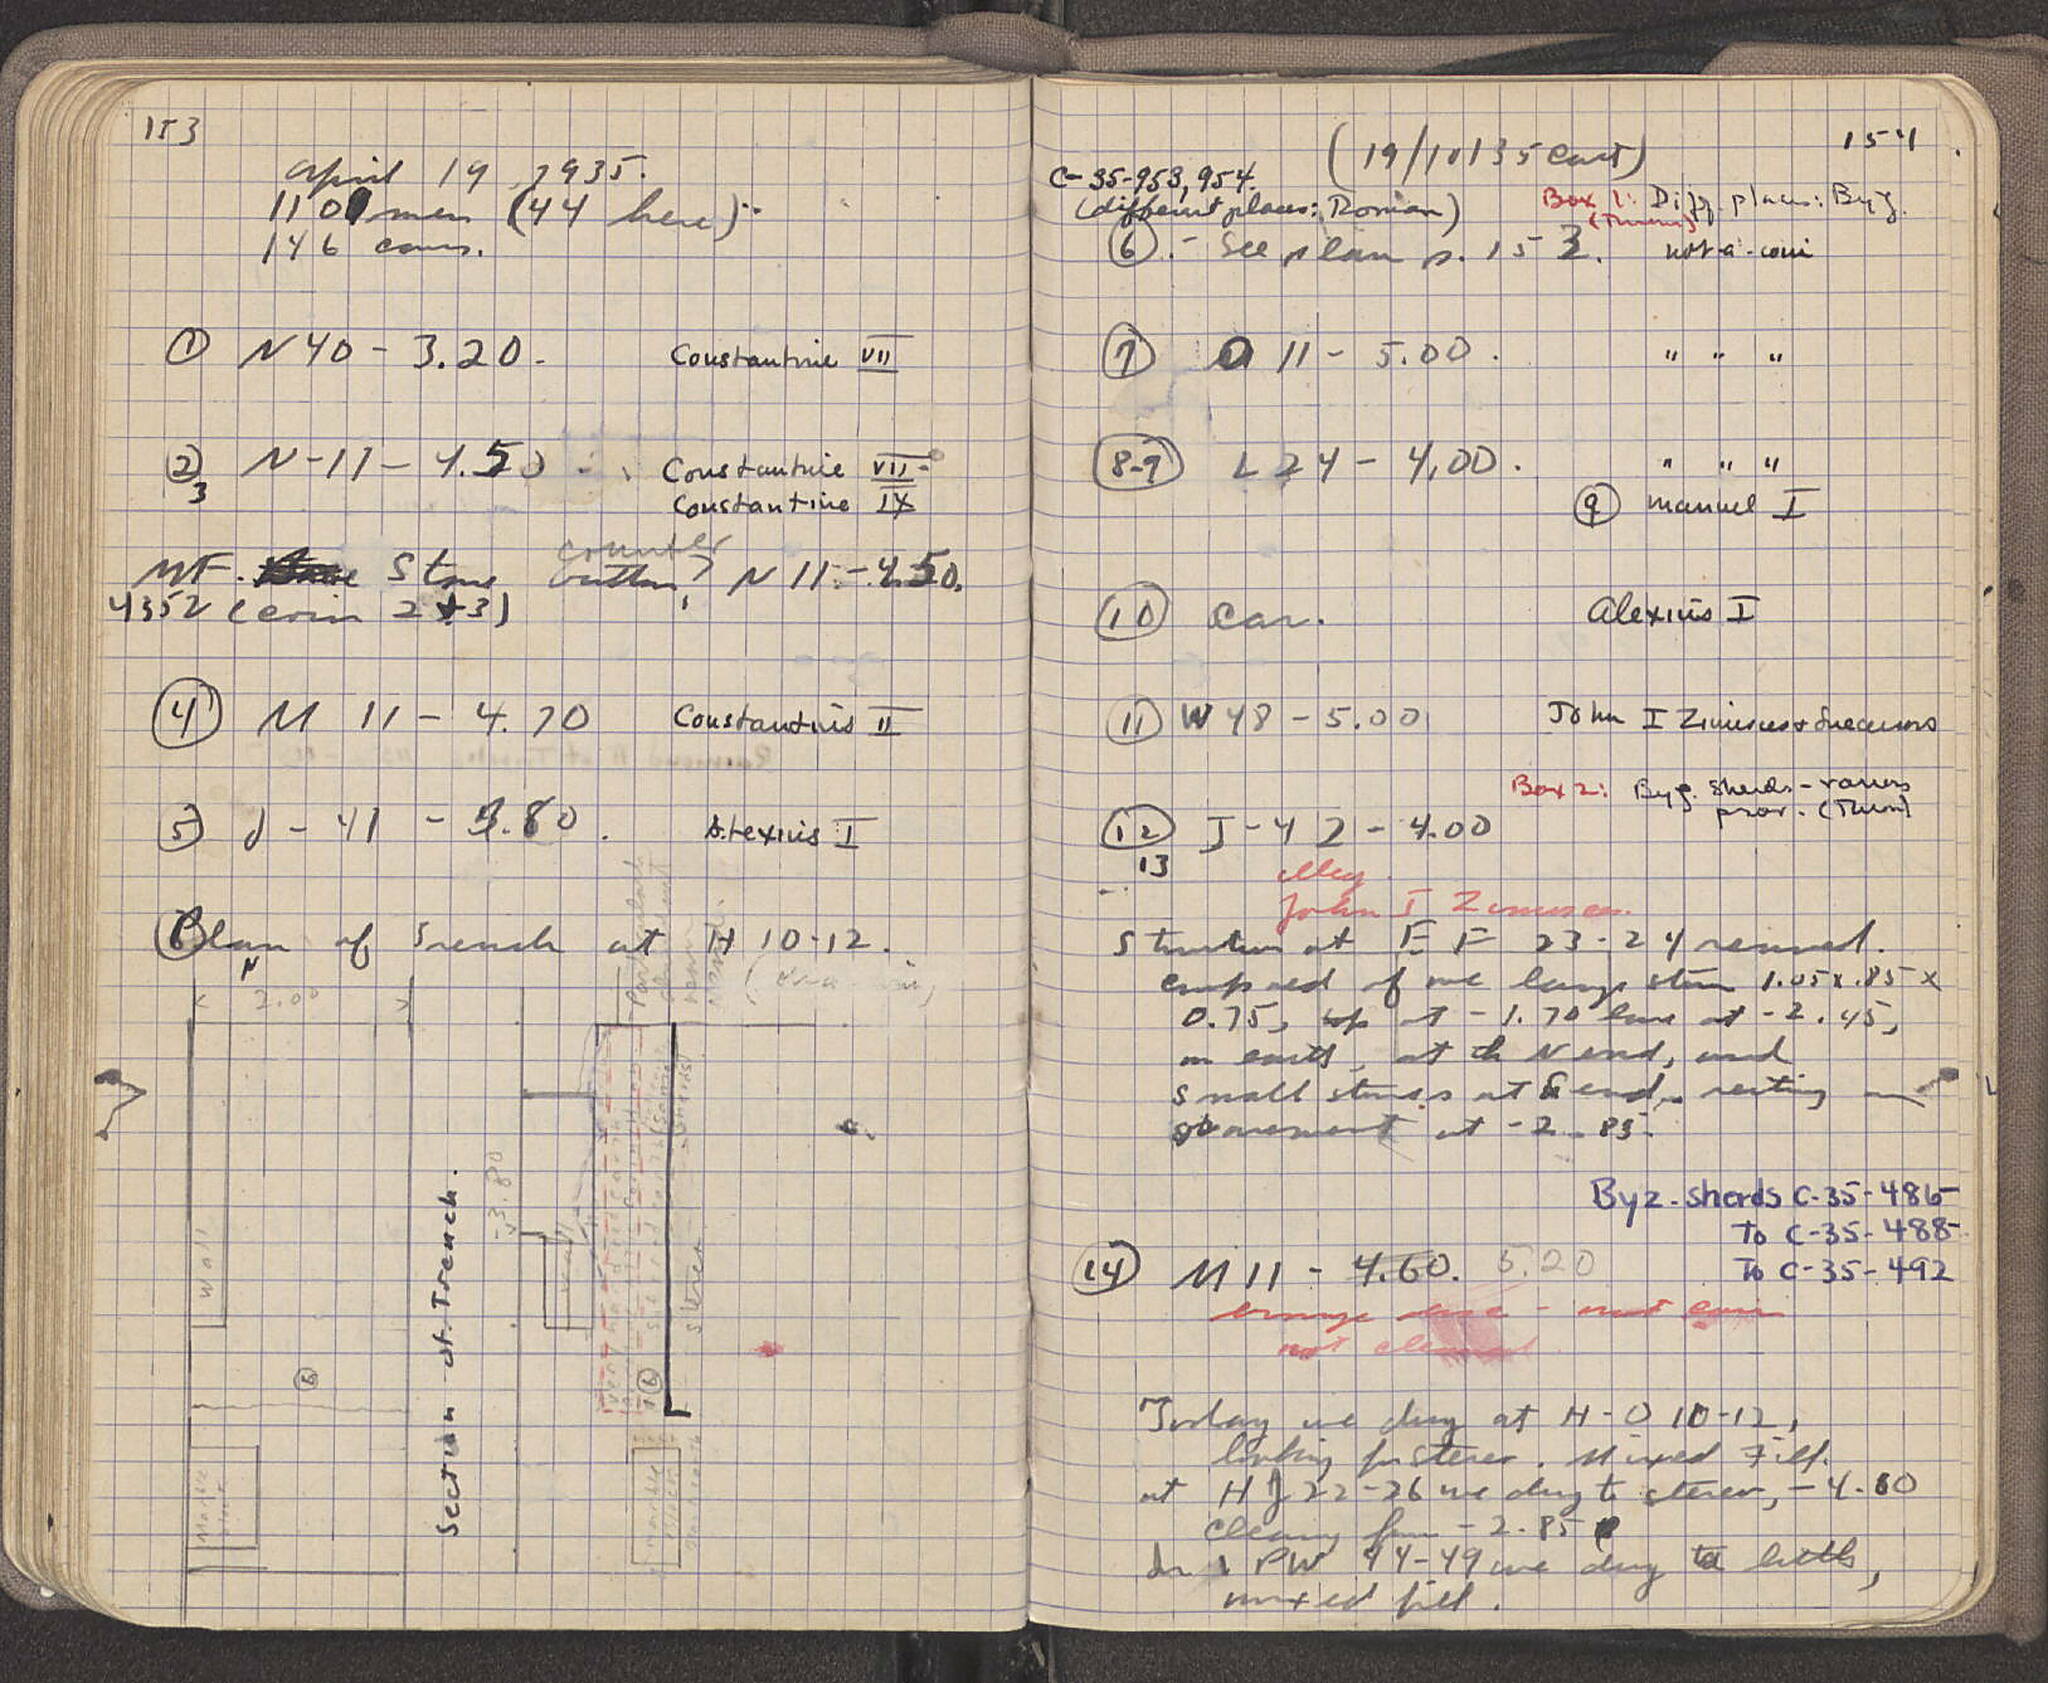 153
April 19, 1935.
110 men (44 here)
146 cars.
① N 40 - 3.20. Constantine VII
② N-11 - 4.50. Constantine VII
3 Constantine IX
counter
MF. Stone button? N 11 - 4.50.
4352 (coin 2+3)
④ M 11 - 4.70 Constantius II
⑤ J - 41 - 3.80. Alexius I
Plan of Trench at H 10-12.
N
2.00
Wall
⑥
Marble block
Section of Trench.
3.80
Wall
⑥
Stereo
marble block
154
C-35-953, 954.
(different places: Roman)
Box 1: Diff. places: Byz.
⑥ - See plan p. 152. not a coin
⑦ O 11 - 5.00. " " "
⑧-9 L 24 - 4.00. " " "
⑨ Manuel I
⑩ Car. Alexius I
⑪ W 48 - 5.00 John I Zimisces + Successors
Box 2: Byz. sherds - various
prov.
⑫ J-42 - 4.00
13
illeg.
John I Zimisces.
Structure at EF 23-24 removed.
composed of one large stone 1.05 x .85 x
0.75, top at -1.70 base at -2.45,
on earth, at the N end, and
small stones at S end, resting on
pavement at -2.85.
Byz. sherds C-35-486
To C-35-488
To C-35-492
⑭ M 11 - 4.60. 5.20
- not coin
not cleaned
Today we dug at H-O 10-12,
looking for stereo. Mixed Fill.
at HJ 22-26 we dug to stereo, -4.60
cleaning from -2.85
In PW 44-49 we dug a little,
mixed fill.